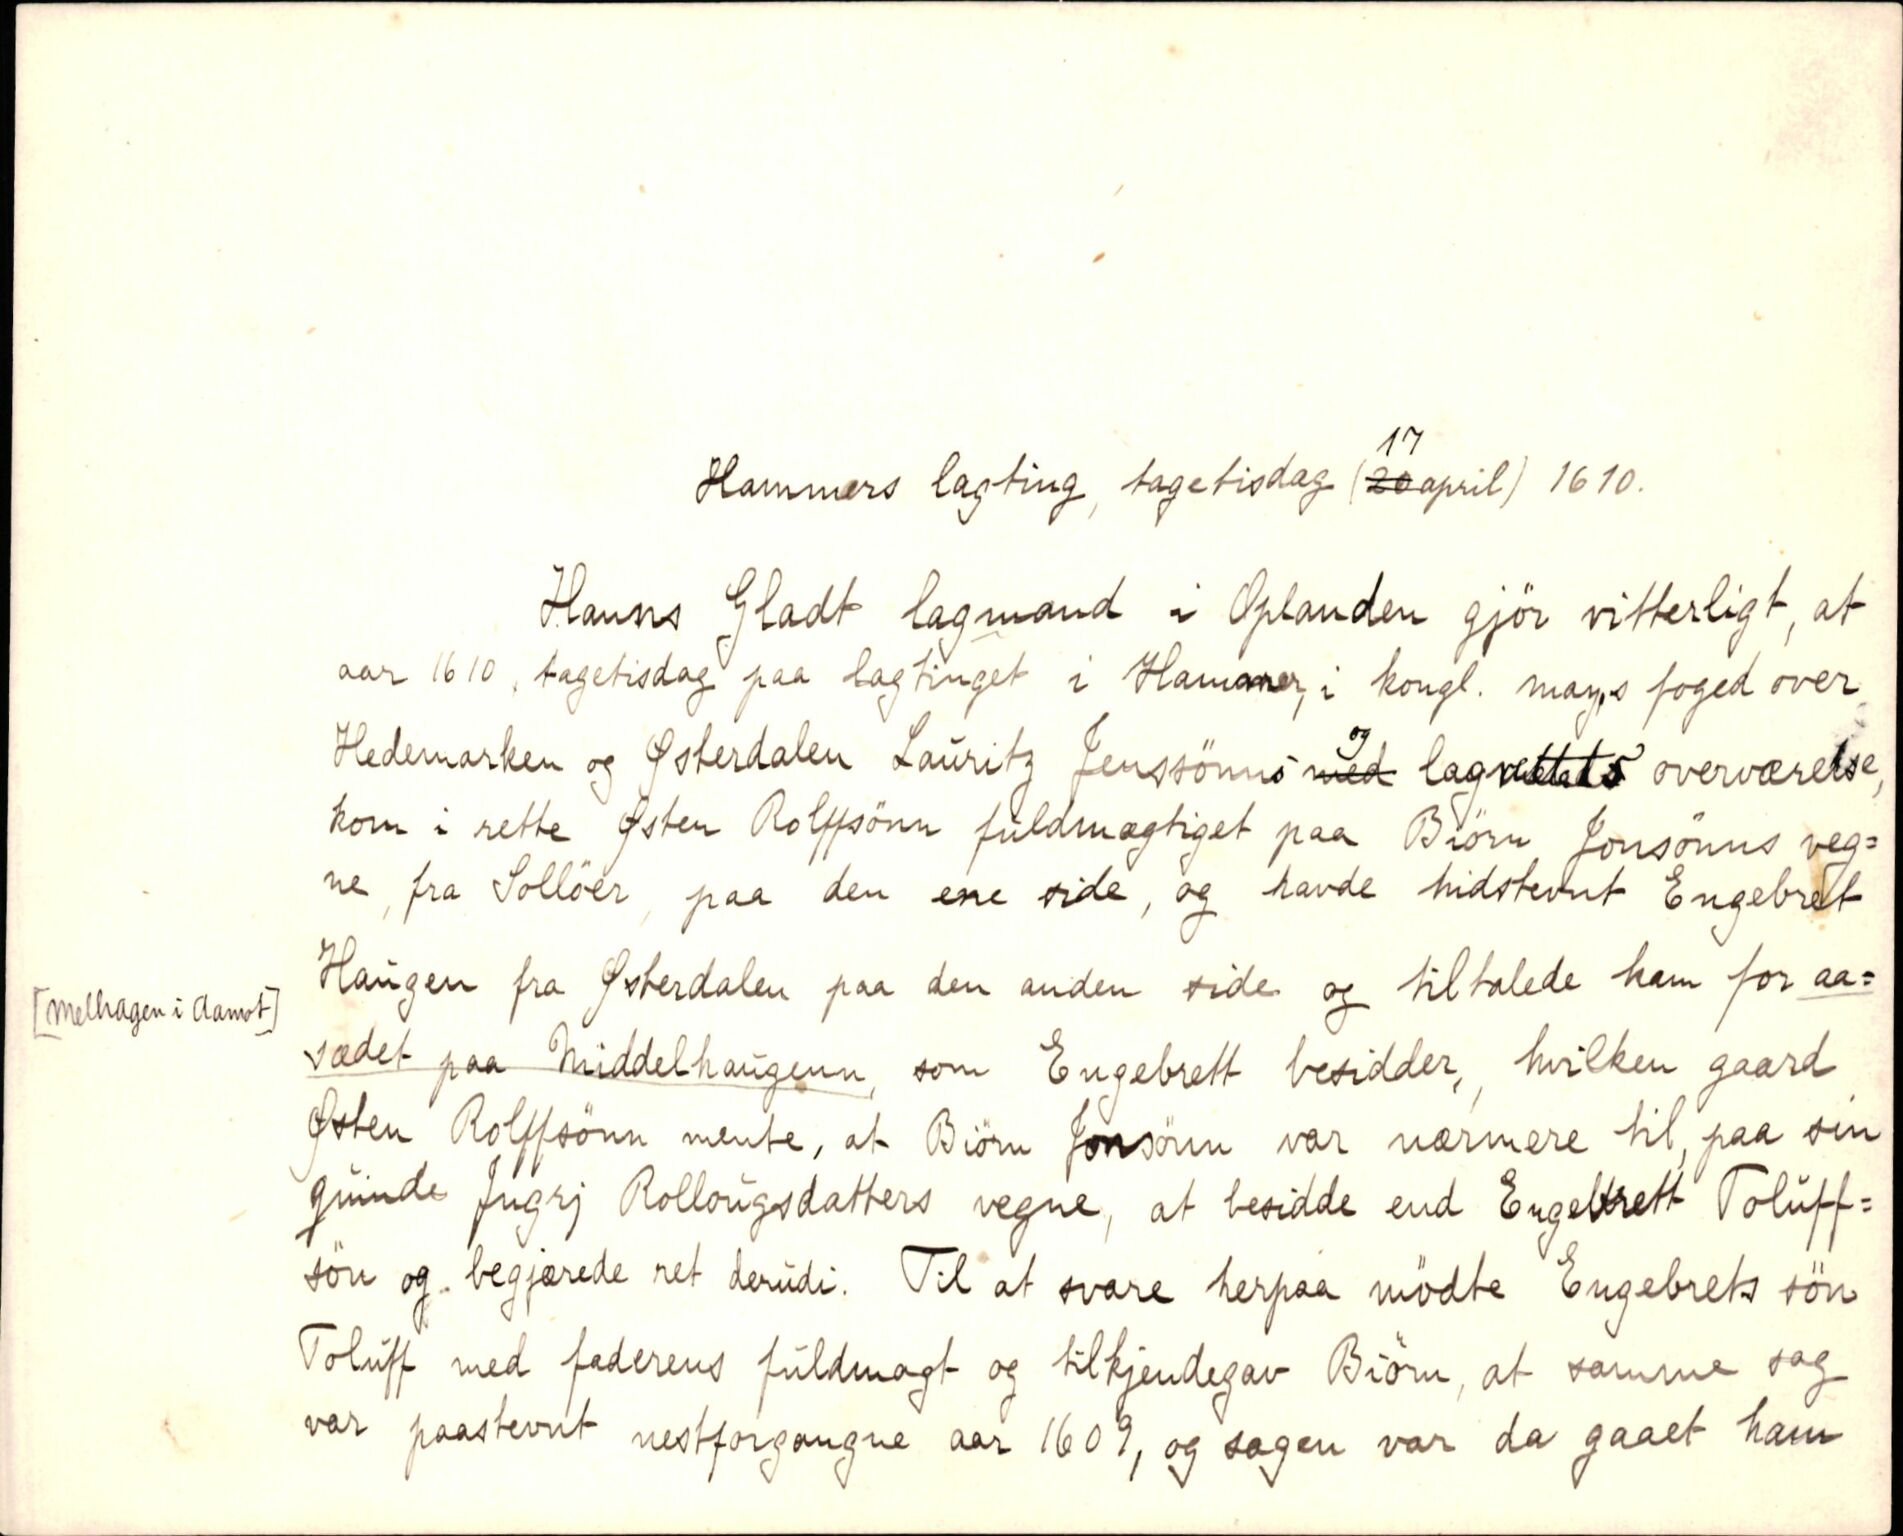 Hammers lagting, tagetisdag (20 17 april) 1610.
Hanns Gladt lagmand i Oplanden gjör vitterligt, at
aar 1610, tagetisdag paa lagtinget i Hammer, i kongl. may.s foged over
Hedemarken og Østerdalen Lauritz Jenssönns med og lagrettets overværelse,
kom i rette Østen Rolffsönn fuldmægtiget paa Biörn Jonsönns veg=
ne, fra Sollöer, paa den ene side, og havde hidstevnt Engebret
Haugen fra Østerdalen paa den anden side og tiltalede ham for aa=
[Melhagen i Aamot]
sædet paa Middelhaugenn, som Engebrett besidder, hvilken gaard
Østen Rolffsönn mente, at Biörn Jonsönn var nærmere til, paa sin
quinde Jngrj Rollougsdatters vegne, at besidde end Engebrett Toluff=
sön og begjærede ret derudi. Til at svare herpaa mödte Engebrets sön
Toluff med faderens fuldmagt og tilkjendegav Biörn, at samme sag
var paastevnt nestforgangne aar 1609, og sagen var da gaaet ham